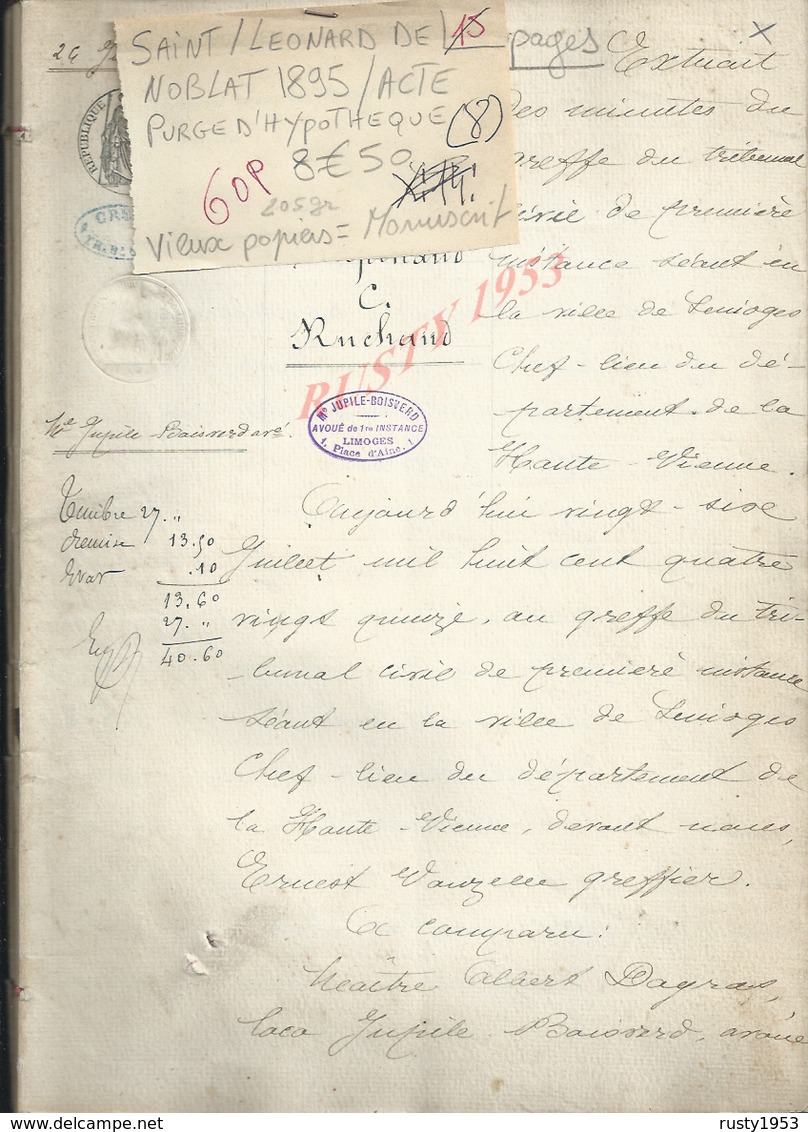 SAINT/LEONARD DE
NOBLAT 1895/ACTE
PURGE D'HYPOTHEQUE (8)
60P 8€50
205gr
Vieux papiers = Manuscrit
15 pages
26
REPUBLIQUE
C.
Ruchaud
RUSTY 1953
Mᵉ JUPILE-BOISVERD
AVOUÉ DE 1re INSTANCE
LIMOGES
1, Place d'Aine, 1
Mᵉ Jupile Boisverd avé.
Timbre 27. "
Remise 13.50
.10
13.60
27. "
40.60
Extrait
des minutes du
greffe du tribunal
civil de première
instance séant en
la ville de Limoges
Chef-lieu du dé-
partement de la
Haute-Vienne.
Aujourd'hui vingt-six
Juillet mil huit cent quatre
vingt quinze, au greffe du tri-
bunal civil de première instance
séant en la ville de Limoges
Chef-lieu du département de
la Haute-Vienne, devant nous,
Ernest Vouzelle greffier.
A comparu:
Maître Albert Dagras,
loco Jupile Boisverd, avoué
delcampe.net
rusty1953